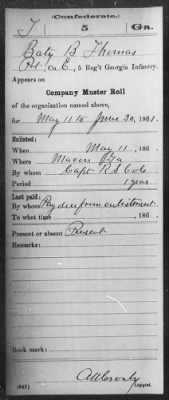 (Confederate.)
T 5 Ga.
Baty B Thomas
Co. E, 5 Reg't Georgia Infantry.
Appears on
Company Muster Roll
of the organization named above,
for May 11 to June 30, 1861.
Enlisted:
When May 11, 186 .
Where Macon Ga
By whom Capt
Period 1 year
Last paid:
By whom Pay due from enlistment
To what time , 186 .
Present or absent Present
Remarks:
Book mark:
(642) Copyist.